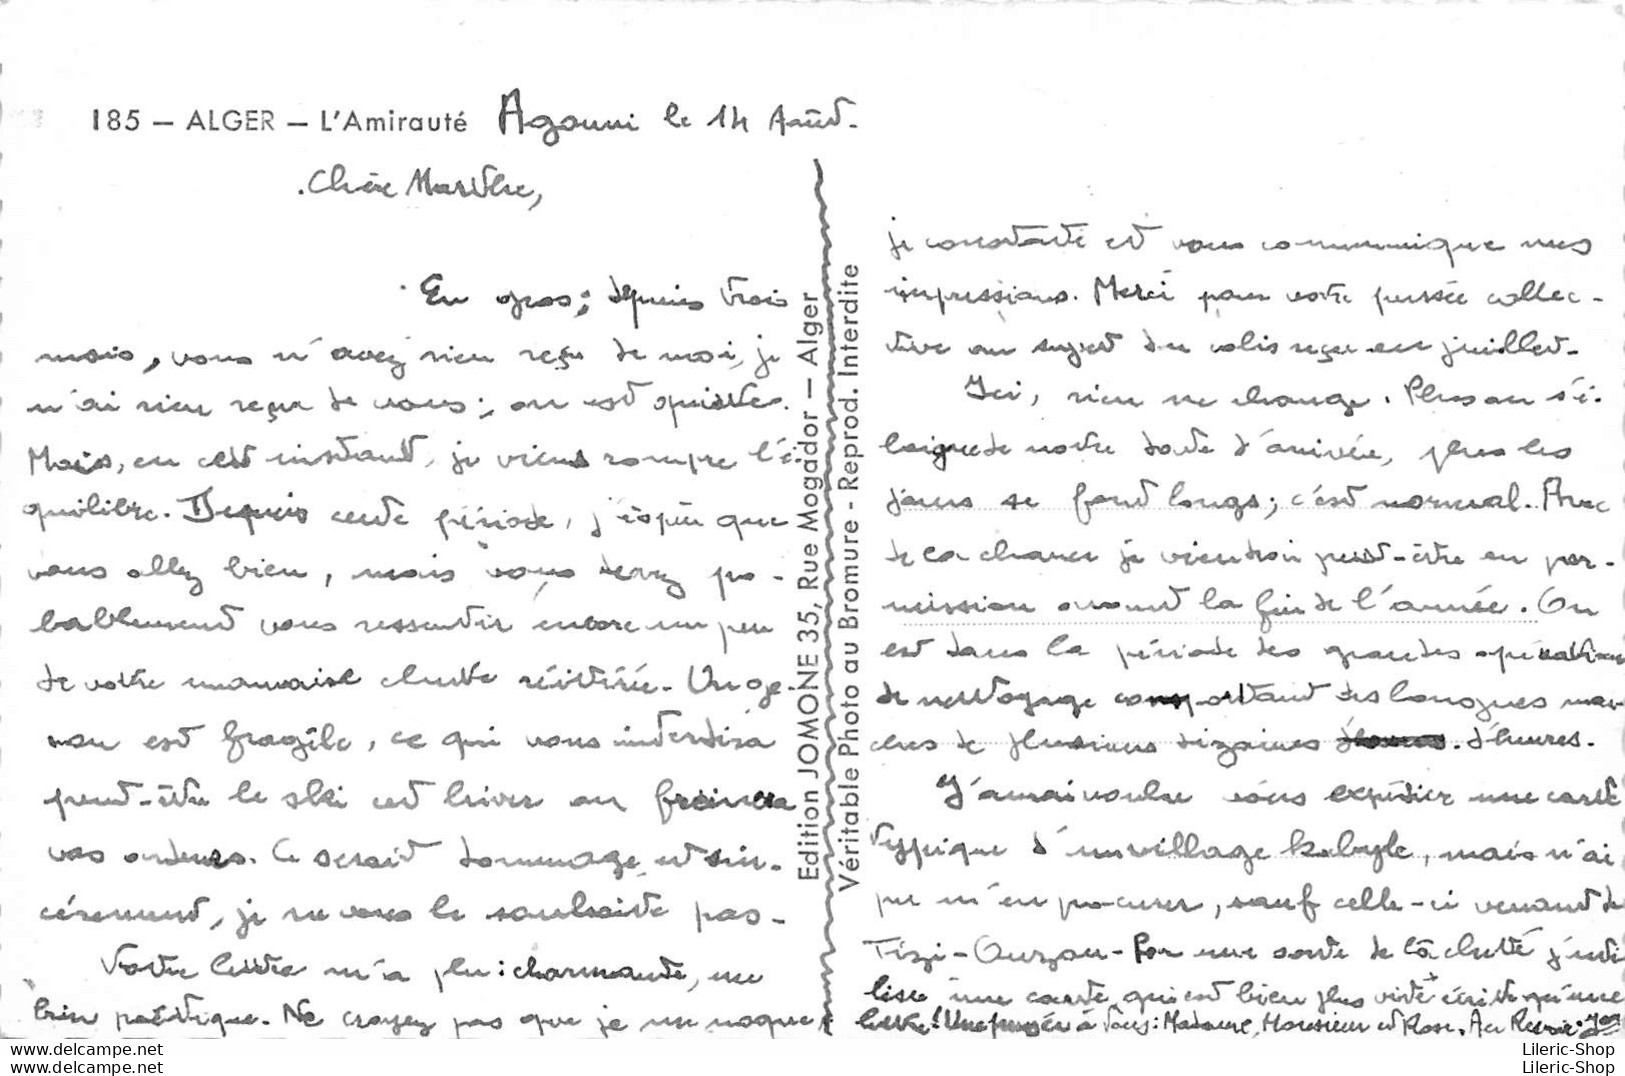 185 — ALGER — L'Amirauté Agouni le 14 Août.
Chère Marthe,
En gros; depuis trois
mois, vous n'avez rien reçu de moi, je
n'ai rien reçu de vous; on est quittes.
Mais, en cet instant, je viens rompre l'é-
quilibre. Depuis cette période, j'espère que
vous allez bien, mais vous devez pro-
bablement vous ressentir encore un peu
de votre mauvaise chute réitérée. Un ge-
nou est fragile, ce qui vous interdira
peut-être le ski cet hiver ou freinera
vos ardeurs. Ce serait dommage et sin-
cèrement, je ne vous le souhaite pas-
Votre lettre m'a plu: charmante, une
bien poétique. Ne croyez pas que je me moque,
Edition JOMONE 35, Rue Mogador — Alger
Véritable Photo au Bromure - Reprod. Interdite
je constate et vous communique mes
impressions. Merci pour votre pensée collec-
tive au sujet du colis reçu en juillet.
Ici, rien ne change. Plus on s'é-
loigne de notre date d'arrivée, plus les
jours se font longs; c'est normal. Avec
de la chance je viendrai peut-être en per-
mission avant la fin de l'année. On
est dans la période des grandes opérations
de nettoyage comportant des longues mar-
ches de plusieurs dizaines d'heures.
J'aurai voulu vous expédier une carte
typique d'un village kabyle, mais n'ai
pu m'en procurer, sauf celle-ci venant de
Tizi-Ouzou- Par une sorte de lâcheté j'uti
lise une carte qui est bien plus vite écrite qu'une
lettre! Une pensée à vous: Madame, Monsieur et Rose. Au Revoir.
Lileric-Shop
Lileric-Shop